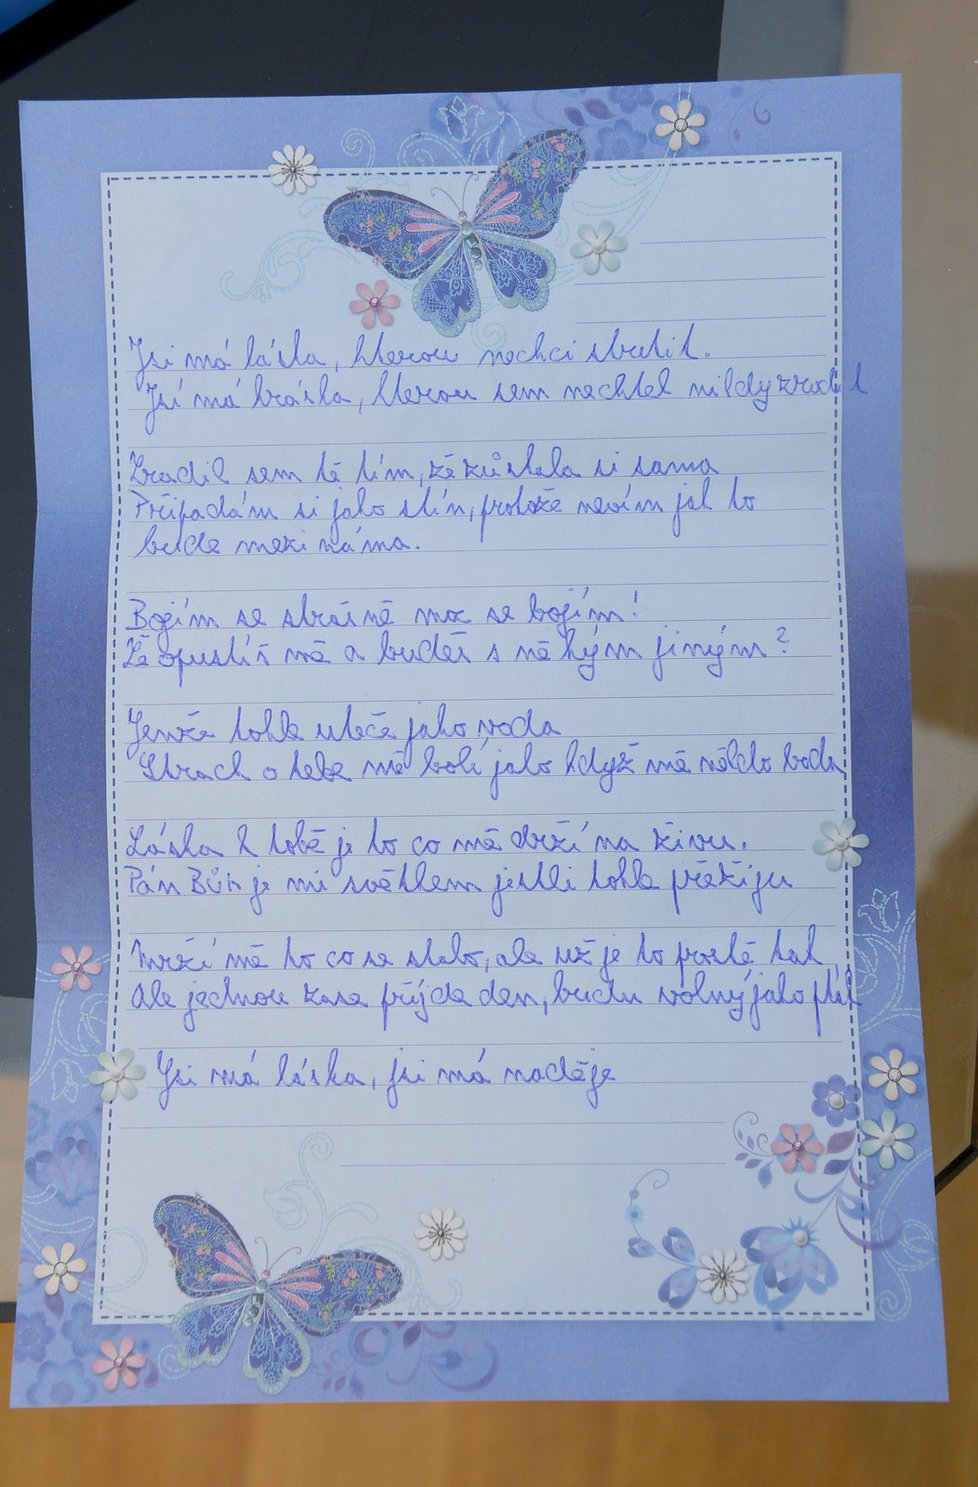 Jsi má láska, kterou nechci stratit.
Jsi má kráska, kterou sem nechtel nikdy zradil
Zradil sem tě tím, žé zůstala si sama
Připadám si jako stín, protože nevím jak to
bude mezi náma.
Bojím se strašně moc se bojím!
Žé opustíš mě a budeš s někým jiným?
Jenže tohle uteče jako voda
Strach o tebe mě bolí jako když mě někdo bodn
Láska k tobě je to co mě drží na živu.
Pán Bůh je mi světlem jestli tohle přěžiju
Mrzí mě to co se stalo, ale už je to prostě tak
Ale jednou zase příjde den, budu volný jako pták
Jsi má láska, jsi má naděje